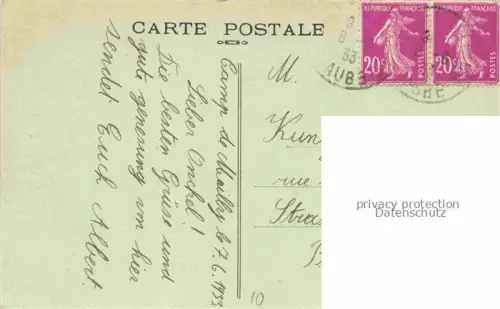 CARTE POSTALE
Camp de Mailly le 7.6.1933
Lieber Onkel!
Die besten Grüse und
gute genesung von hier
sendet Euch Albert.
M.
Kun
rue
Stras
10
REPUBLIQUE FRANÇAISE
20c
POSTES
REPUBLIQUE FRANÇAISE
20c
POSTES
33
AUBE
UBE
privacy protection
Datenschutz